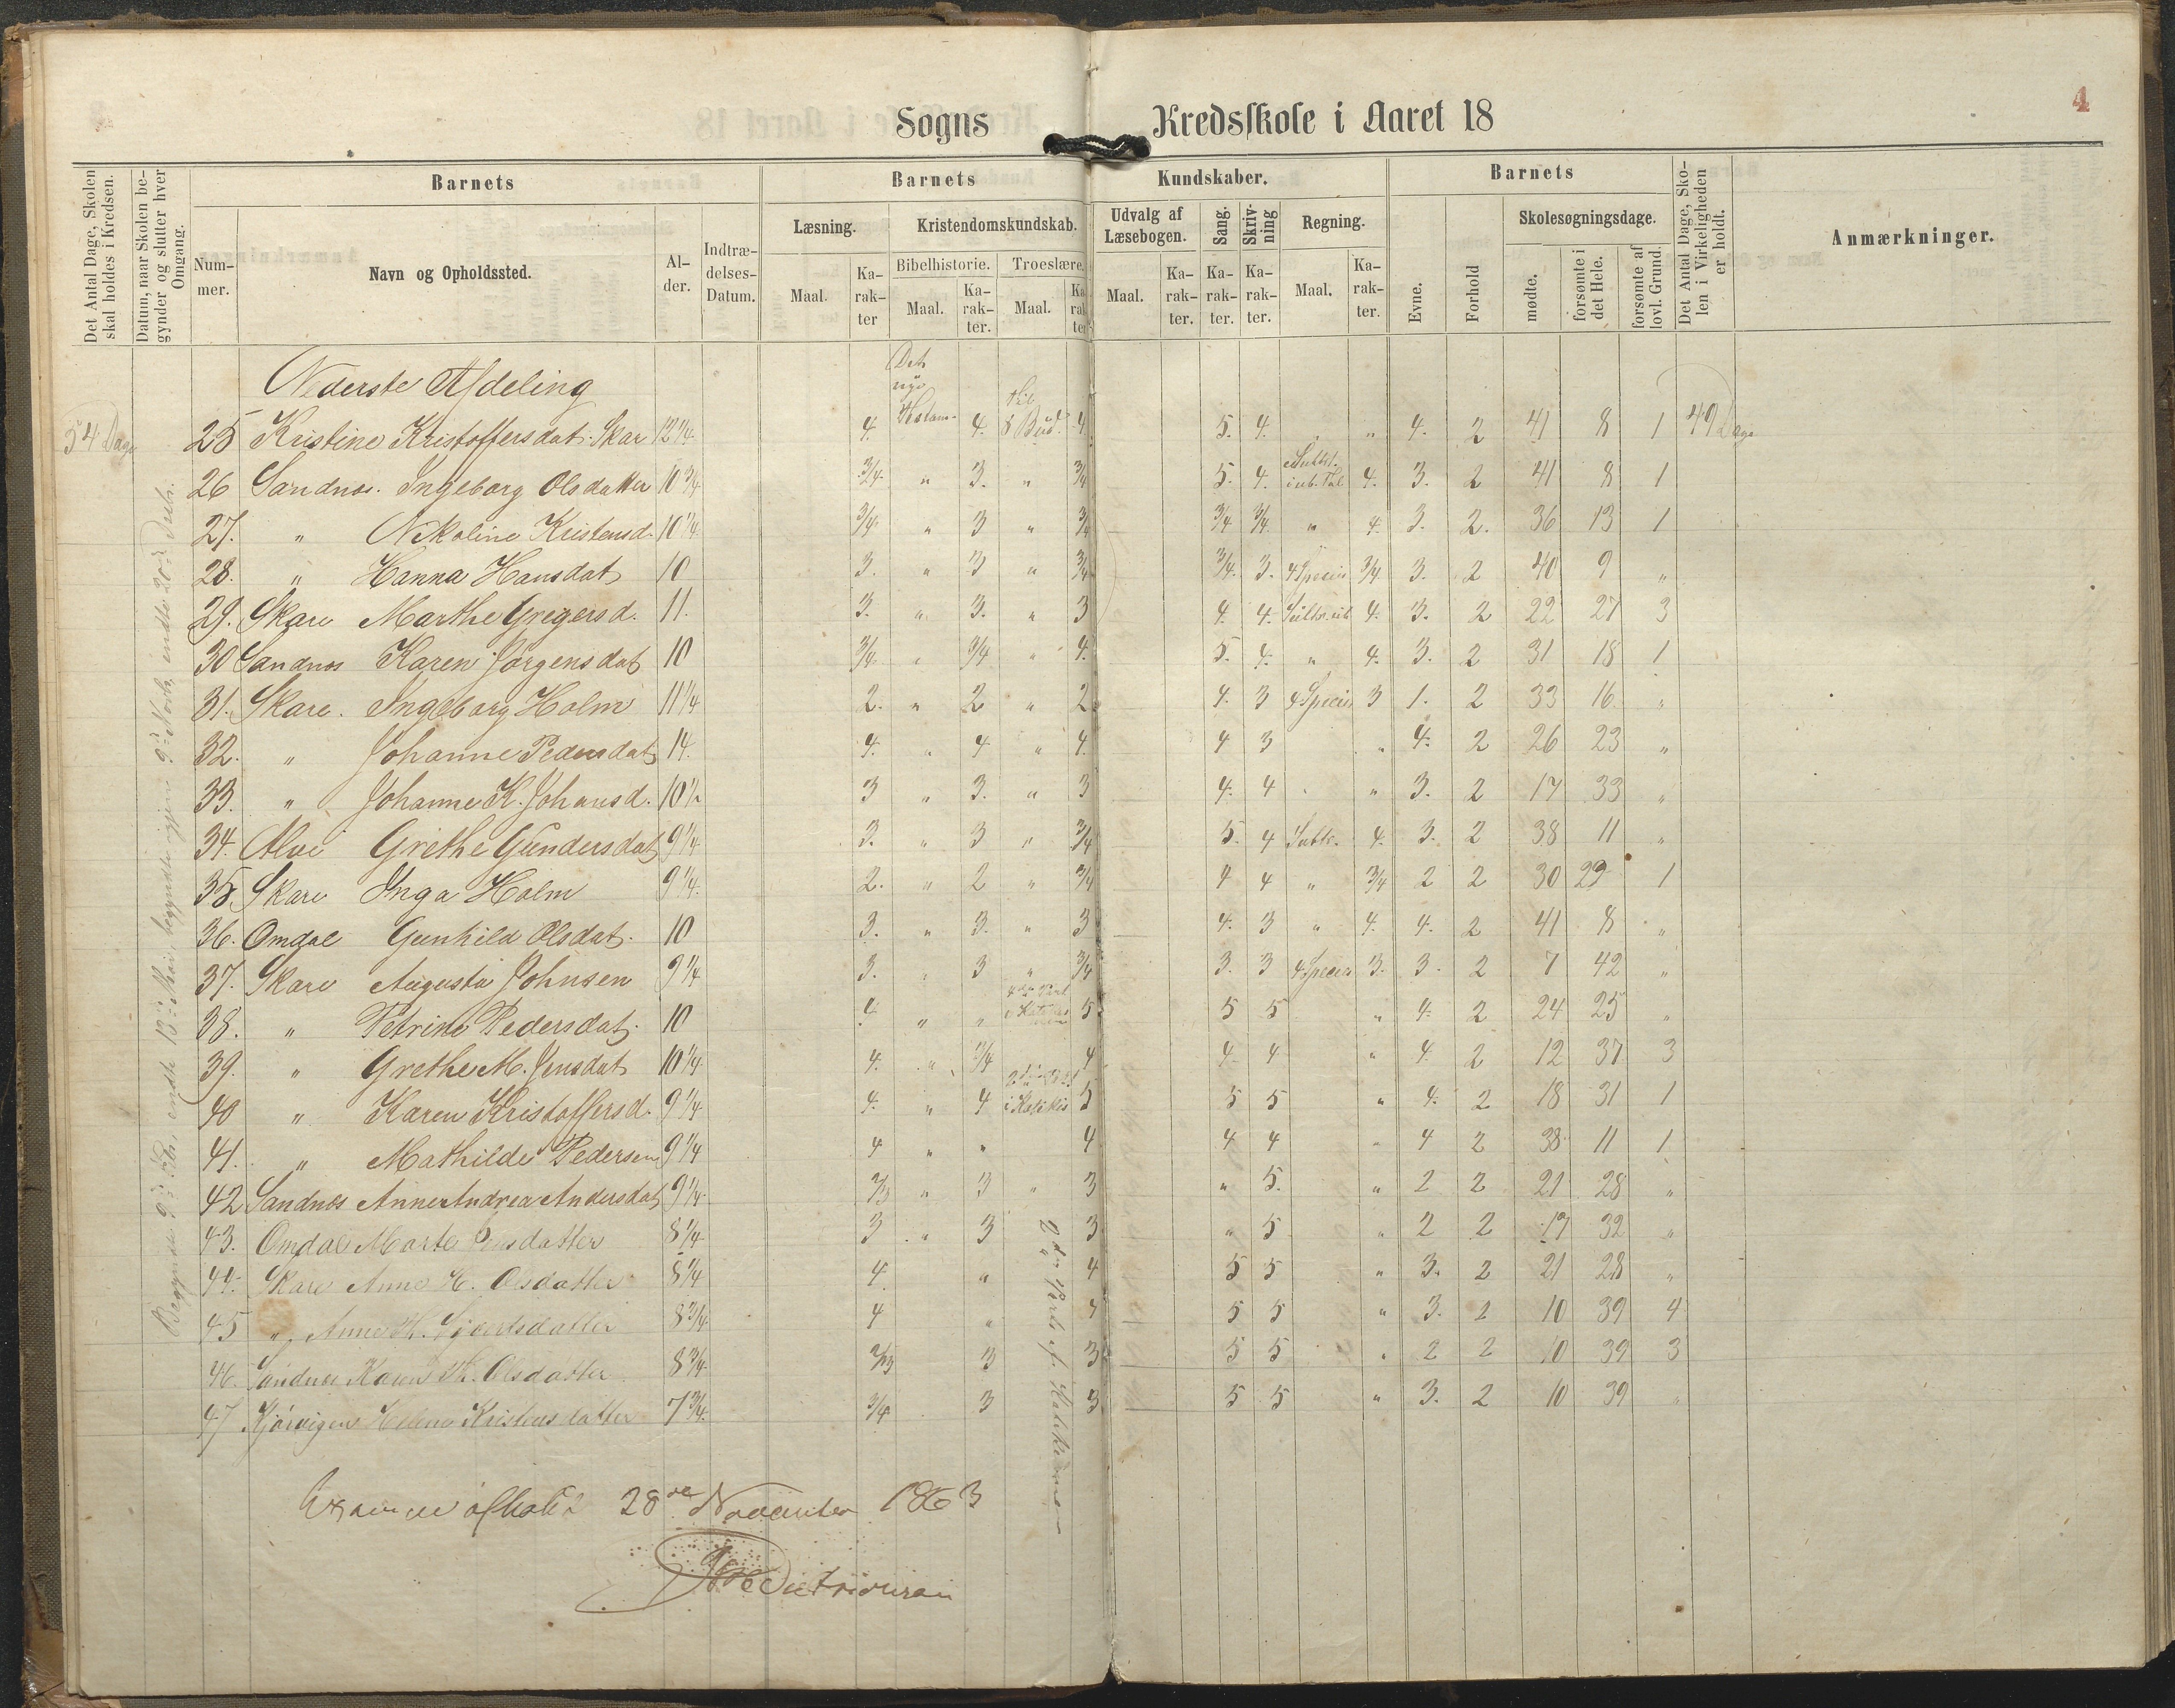 4
Sogns Kredsskole i Aaret 18
Det Antal Dage, Skolen skal holdes i Kredsen.
Datum, naar Skolen begynder og slutter hver Omgang.
Barnets Barnets Kundskaber. Barnets
Det Antal Dage, Skolen i Virkeligheden er holdt.
Anmærkninger.
Nummer. Navn og Opholdssted. Alder. Indtrædelses-Datum.
Læsning. Kristendomskundskab. Udvalg af Læsebogen. Sang. Skrivning Regning. Evne. Forhold Skolesøgningsdage.
Bibelhistorie. Troeslære.
Maal. Karakter Maal. Karakter. Maal. Karakter Maal. Karakter. Karakter. Karakter. Maal. Karakter. mødte. forsømte i det Hele. forsømte af lovl. Grund.
Nederste Afdeling
54 Dage 25 Kristine Kristoffersdat. Skar 12 1/4 4. Det nye Testam. 4. til 8 Bud. 4 5. 4. . " 4. 2 41 8 1 49 Dage
26 Sandnes. Ingeborg Olsdatter 10 3/4 3/4 " 3. " 3/4 5. 4. 4. 3. 2 41 8 1
27. " Nikoline Kristensd. 10 1/4 3/4 " 3 " 3/4 3/4 3/4 " 4. 3. 2. 36 13 1
28. " Hanna Hansdat 10 3. " 3 " 3/4 3/4. 3. 4 Specier 3/4 3. 2 40 9 "
29. Skare Marthe Gregersd. 11. 3. " 3. " 3 4. 4. 4. 3. 2 22 27 3
30 Sandnes Karen Jørgensdat 10 3/4 " 3/4 " 4. 5. 4. " 4. 3. 2 31 18 1
31. Skare. Ingeborg Holm 11 1/4 2. " 2 " 2 4. 3 4 Specier 3 1. 2 33 16 "
32. " Johanne Pedersdat 14. 4. " 4 " 4. 4 3 " 4. 2 26 23 "
33. " Johanne K. Johansd. 10 1/2 3 " 3. " 3 4. 4 . " 3. 2 17 33 "
34. Alve Grethe Gundersdat 9 1/4 3. " 3 " 3/4 5. 4 Subtr. 4. 3. 2 38 11 "
35. Skare Inga Holm 9 1/4. 2. " 2 " 3/4 4 4 " 3/4 2 2 30 29 1
36. Omdal Gunhild Olsdat. 10 3. " 3. " 3 4. 3 " 4. 4. 2 41 8 "
37. Skare Augusta Johnsen 9 1/4 3. " 3 " 3/4 3. 3 4 Specier 3. 3. 2 7 42 "
38. " Petrine Pedersdat. 10 4 " " 4de Part i Katekismen 5 5 5 " 4. 2 24 25 "
39. " Grethe M. Jensdat 10 1/4 4. " 3/4 4 4. 4 " 4 2 12 37 3
40 " Karen Kristoffersd. 9 1/4 4. " 4 i Katekis 5 5 5 " 4. 2 18 31 1
41. " Mathilde Pedersen 9 1/4 4 " " 4 4 4 " 4 2 38 11 1
42 Sandnes Anne Andrea Andersdat 9 1/4 2/3 " 3 " 3 " 5. " 2 2 21 28 "
43. Omdal Marte Jensdatter 8 1/4 3 " 3 3 " 5 " 2 2 17 32 "
44. Skare Anne H. Olsdatter 8 1/4 4 " 4 5 5 " 3. 2 21 28 "
45 " Anne M. datter 8 3/4 4 " 4 5 5 " 3. 2 10 39 4
46. Sandnes Karen M. Olsdatter 8 3/4 2/3 3 3 5 5 " 2 2 10 39 3
47 Kjørvigen Helene Kristensdatter 7 3/4. 3/4 3 3 5 5 " 3. 2 10 39 "
2den Part af Katekismen
Begyndte 9de Fbr., endte 13de Mai, begyndte igjen 9de Novb., endte 20de Decbr.
Examen afholdt 28de November 1863